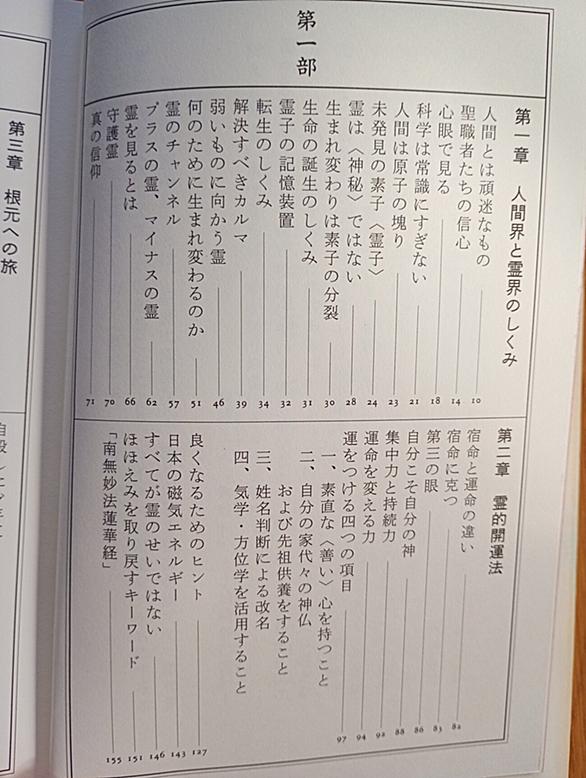 第一部
第一章 人間界と霊界のしくみ
人間とは頑迷なもの 10
聖職者たちの信心 14
心眼で見る 18
科学は常識にすぎない 21
人間は原子の塊り 23
未発見の素子〈霊子〉 24
霊は〈神秘〉ではない 28
生まれ変わりは素子の分裂 30
生命の誕生のしくみ 31
霊子の記憶装置 32
転生のしくみ 34
解決すべきカルマ 39
弱いものに向かう霊 46
何のために生まれ変わるのか 51
霊のチャンネル 57
プラスの霊、マイナスの霊 62
霊を見るとは 66
守護霊 70
真の信仰 71
第二章 霊的開運法
宿命と運命の違い 82
宿命に克つ 83
第三の眼 86
自分こそ自分の神 88
集中力と持続力 92
運命を変える力 94
運をつける四つの項目 97
一、素直な〈善い〉心を持つこと
二、自分の家代々の神仏
および先祖供養をすること
三、姓名判断による改名
四、気学・方位学を活用すること
良くなるためのヒント 127
日本の磁気エネルギー 143
すべてが霊のせいではない 146
ほほえみを取り戻すキーワード 151
「南無妙法蓮華経」 155
第三章 根元への旅